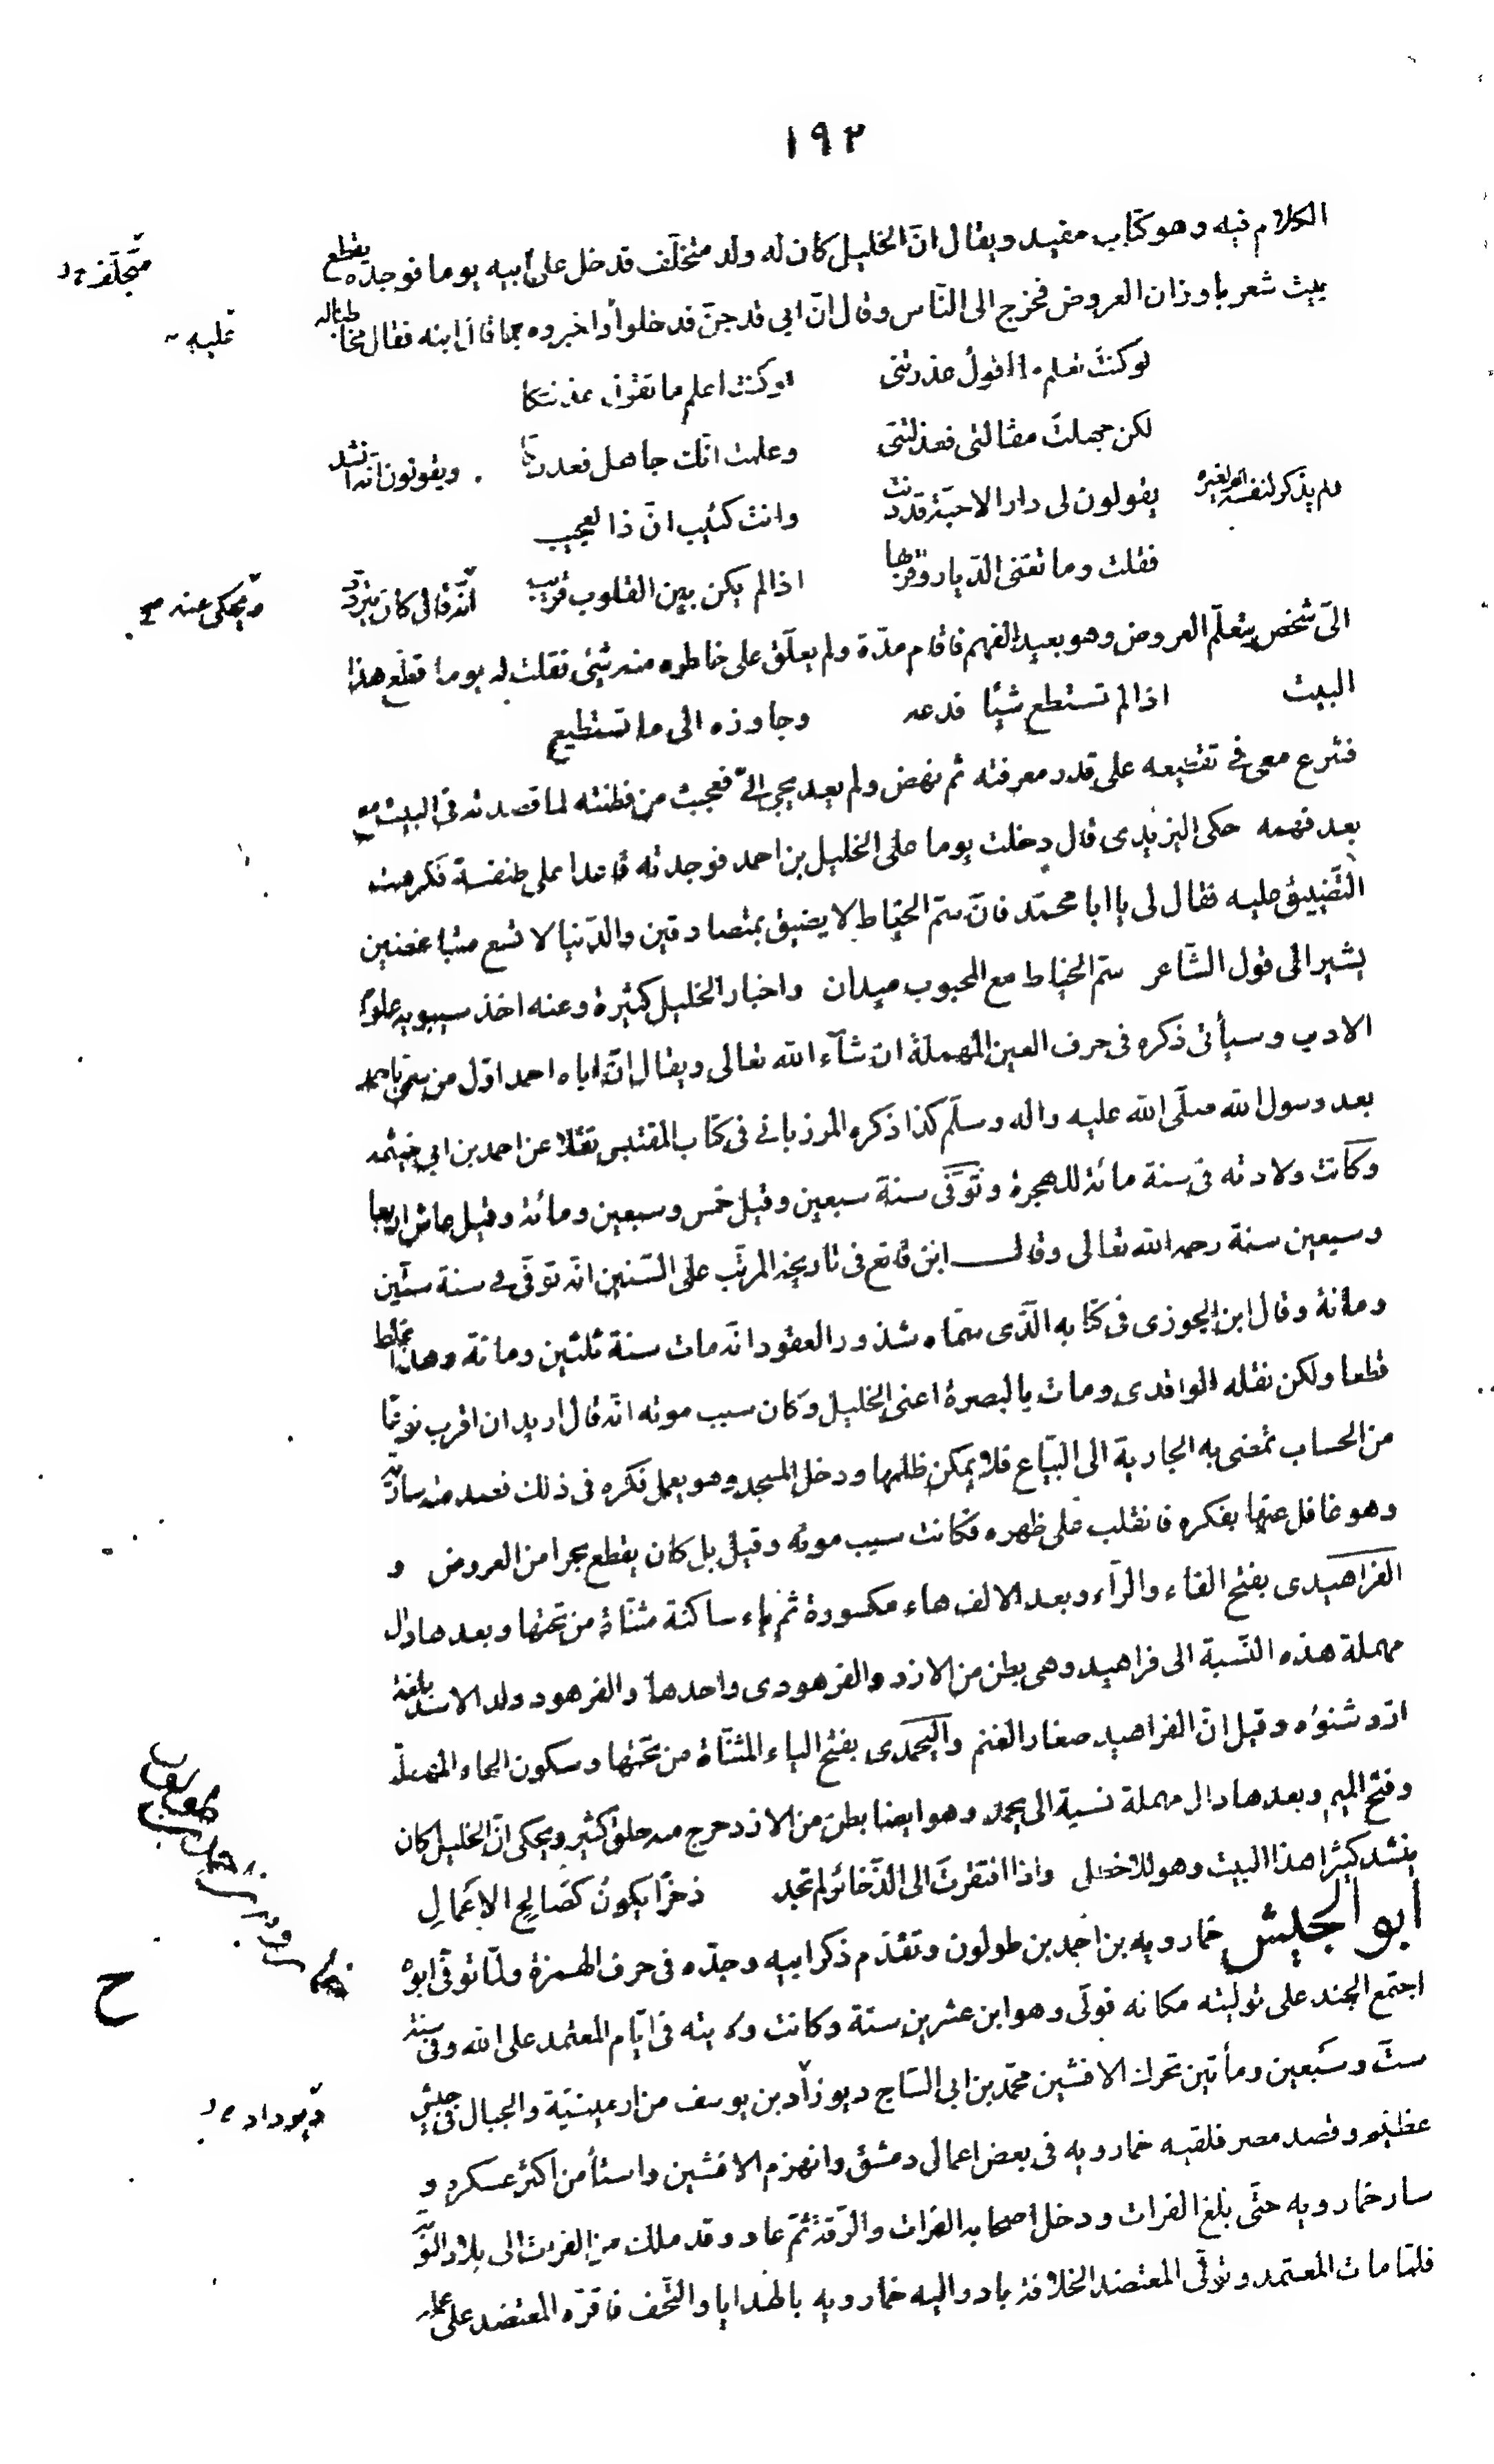 ١٩٢
الكلام فيه وهو كتاب مفيد ويقال انّ الخليل كان له ولد متخلّف قدخل على أبيه يوما فوجده يقطع
بيت شعر باوزان العروض فخرج الى النّاس وقال انّ ابي قد جنّ فدخلوا واخبروه بما قال ابنه فقال مخاطبا له
لو كنتَ تعلم ما اقولُ عذرتنى لو كنت اعلم ما تقول عذلتكا
لكن جهلتَ مقالتى فعذلتنى وعلمت انّك جاهل فعذرتكا ويقولون انّه انشد
ولم يذكر لنفسه ام لغيره يقولون لى دار الاحبّة قد دنت وانت كئيب انّ ذا لعجيب
فقلت وما تغنى الدّيار وقربها اذا لم يكن بين القلوب قريب انّه قال كان يتردّد
الىّ شخص يتعلّم العروض وهو بعيد الفهم فاقام مدّة ولم يعلّق على خاطره منه شئ فقلت له يوما قطّع هذا
البيت اذا لم تستطع شيئا فدعه وجاوزه الى ما تستطيع
فشرع معى فى تقطيعه على قدر معرفته ثم نهض ولم يعد يجئ الىّ فعجبت من فطنته لما قصدته فى البيت مع
بعد فهمه حكى اليزيدى قال دخلت يوما على الخليل بن احمد فوجدته قاعدا على طنفسة فكرهت
التّضييق عليه فقال لى يا ابا محمّد فانّ سمّ الخياط لا يضيق بمتصادقين والدّنيا لا تسع متباغضين
يشير الى قول الشّاعر سمّ الخياط مع المحبوب ميدان واخبار الخليل كثيرة وعنه اخذ سيبويه علوم
الادب وسيأتى ذكره فى حرف العين المهملة ان شآء الله تعالى ويقال انّ اباه احمد اوّل من سمّى باحمد
بعد رسول الله صلّى الله عليه واله وسلّم كذا ذكره المرزبانى فى كتاب المقتبس نقلا عن احمد بن ابى خيثمه
وكانت ولادته فى سنة مائة للهجرة وتوفّى سنة سبعين وقيل خمس وسبعين ومائة وقيل عاش اربعا
وسبعين سنة رحمه الله تعالى وقال ابن قانع فى تاريخه المرتّب على السّنين انّه توفّى فى سنة ستّين
ومائة وقال ابن الجوزى فى كتابه الّذى سمّاه شذور العقود انّه مات سنة ثلثين ومائة وهذا غلط
قطعا ولكن نقله الواقدى ومات بالبصرة اعنى الخليل وكان سبب موته انّه قال اريد ان اقرب نوعا
من الحساب تمضى به الجارية الى البيّاع فلا يمكن ظلمها ودخل المسجد وهو يعمل فكره فى ذلك فصدمته سارية
وهو غافل عنها بفكره فانقلب على ظهره فكانت سبب موته وقيل بل كان يقطع بحرا من العروض و
الفراهيدى بفتح الفاء والرّاء وبعد الالف هاء مكسورة ثم ياء ساكنة مثنّاة من تحتها وبعدها دال
مهملة هذه النّسبة الى فراهيد وهى بطن من الازد والفرهودى واحدها والفرهود ولد الاسد بلغة
ازد شنوءه وقيل انّ الفراهيد صغار الغنم واليحمدى بفتح الياء المثنّاة من تحتها وسكون الحاء المهملة
وفتح الميم وبعدها دال مهملة نسبة الى يحمد وهو ايضا بطن من الازد خرج منه خلق كثير ويحكى انّ الخليل كان
ينشد كثيرا هذا البيت وهو للاخطل واذا افتقرتَ الى الذّخائر لم تجد ذخرًا يكونُ كصَالحِ الاَعمَالِ
أبو الجيش خمارويه بن احمد بن طولون وتقدّم ذكر ابيه وجدّه فى حرف الهمزة ولمّا توفّى ابوه
اجتمع الجند على توليته مكانه فولّى وهو ابن عشرين سنة وكانت ولايته فى ايّام المعتمد على الله وفى سنة
ستّ وسَبعين ومأتين تحرك الافشين محمّد بن ابى السّاج ديوزاد بن يوسف من ارمينيّة والجبال فى جيش
عظيم وقصد مصر فلقيه خمارويه فى بعض اعمال دمشق وانهزم الافشين واستأمن اكثر عسكره و
سار خمارويه حتّى بلغ الفرات ودخل اصحابه الفرات والرّقة ثمّ عاد وقد ملك من الفرات الى بلاد النّوبة
فلمّا مات المعتمد وتولّى المعتضد الخلافة بادر اليه خمارويه بالهدايا والتّحف فاقرّه المعتضد على عمله
متخلّف
عليه
ويحكى عنه
ديوداد
خمارويه بن احمد بن طولون
ح